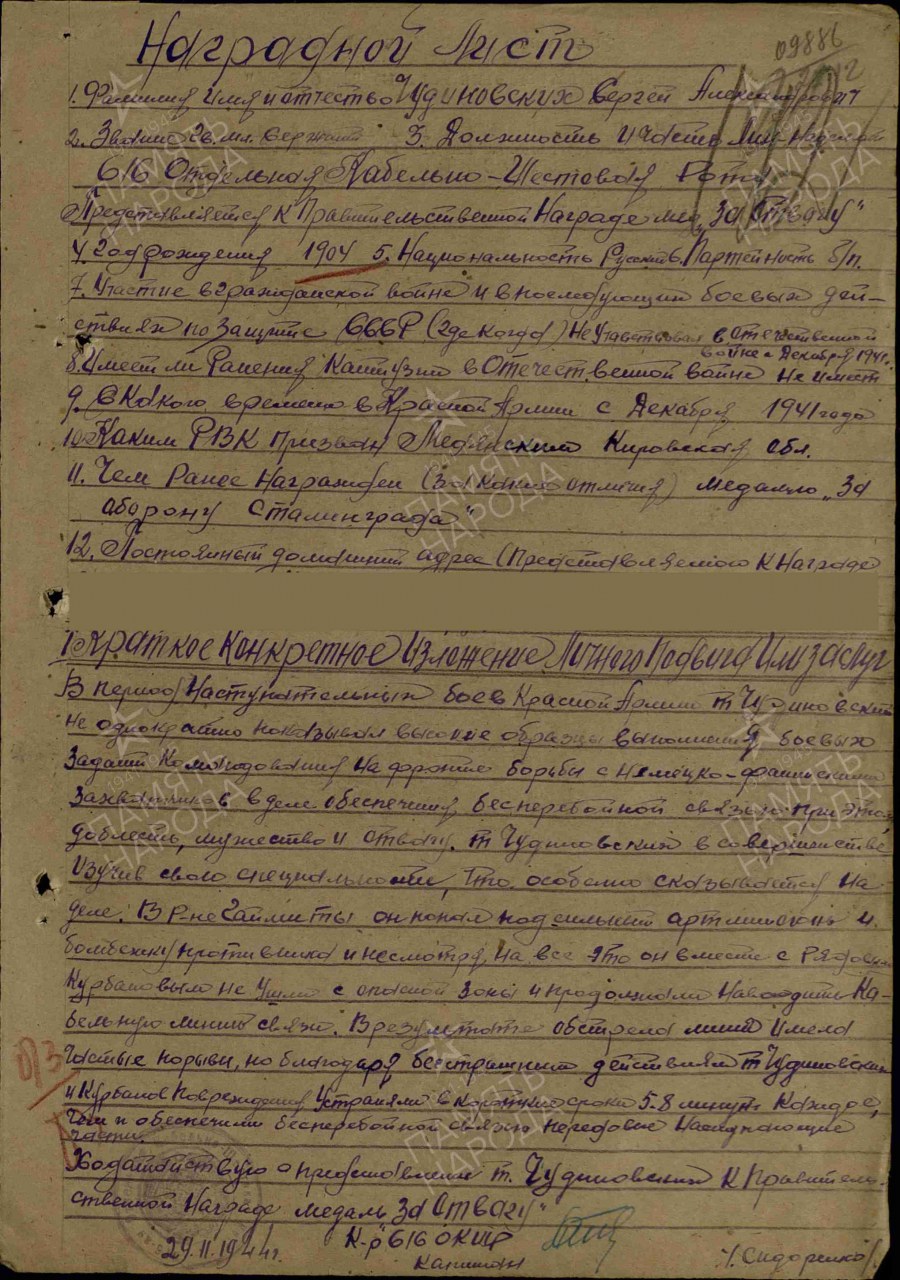 Наградной Лист
09886
1. Фамилия Имя и отчество Чудиновских Сергей Александрович
2. Звание Гв. мл. сержант 3. Должность и часть
616 Отдельная Кабельно-Шестовая Рота
Представляется к Правительственной Награде мед. "За Отвагу"
4. Год рождения 1904 5. Национальность Русский 6. Партейность б/п.
7. Участие в гражданской войне и в последующих боевых дей-
ствиях по Защите СССР (где когда) Не участвовал в Отечественной
войне с Декабря 1941г.
8. Имеет ли Ранения Контузии в Отечественной войне не имеет
9. С Какого времени в Красной Армии с Декабря 1941 года
10. Каким РВК призван Медянским Кировская обл.
11. Чем Ранее Награжден (За какие отличия) медалью "За
оборону Сталинграда"
12. Постоянный домашний адрес (Представляемого к Награде
1. Краткое Конкретное Изложение Личного Подвига Или заслуг
В период Наступательных боев Красной Армии т. Чудиновских
не однократно показывал высокие образцы выполнения боевых
Заданий Командования на фронте борьбы с немецко-фашистскими
Захватчиками в деле обеспечения бесперебойной связью при этом
доблесть, мужество и отвагу. т. Чудиновских в совершенстве
Изучив свою специальность, Что особенно сказывается на
деле. В Р-не он попал под сильный артминогонь и
бомбежку противника и несмотря на все это он вместе с Рядовым
Курбановым не ушли с опасной зоны и продолжали наводить Ка-
бельную линию связи. В результате обстрела линия имела
Частые порывы, но благодаря бесстрашным действиям т. Чудиновских
и Курбанов Повреждения Устраняли в короткие сроки 5-8 минут каждое,
Чем и обеспечили бесперебойной связью передовые наступающие
части.
Ходатайствую о представлении т. Чудиновских к Правитель-
ственной Награде медаль "За Отвагу"
29.11.1944г. К-р 616 ОКШР
Капитан /Сидоренко/